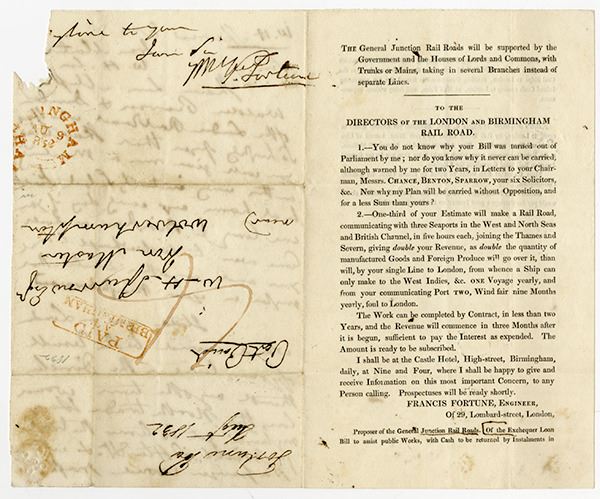 time to your
I am Sir
Fortune
BIRMINGHAM
AU 9
1832
W. H. Sparrow Esq
Iron Master
Wolverhampton
near
PAID
AT
BIRMINGHAM
1832
Fortune
Augt 1832
THE General Junction Rail Roads will be supported by the
Government and the Houses of Lords and Commons, with
Trunks or Mains, taking in several Branches instead of
separate Lines.
TO THE
DIRECTORS OF THE LONDON AND BIRMINGHAM
RAIL ROAD.
1.—You do not know why your Bill was turned out of
Parliament by me; nor do you know why it never can be carried,
although warned by me for two Years, in Letters to your Chair-
man, Messrs. CHANCE, BENTON, SPARROW, your six Solicitors,
&c. Nor why my Plan will be carried without Opposition, and
for a less Sum than yours?
2.—One-third of your Estimate will make a Rail Road,
communicating with three Seaports in the West and North Seas
and British Channel, in five hours each, joining the Thames and
Severn, giving double your Revenue, as double the quantity of
manufactured Goods and Foreign Produce will go over it, than
will, by your single Line to London, from whence a Ship can
only make to the West Indies, &c. ONE Voyage yearly, and
from your communicating Port TWO, Wind fair nine Months
yearly, foul to London.
The Work can be completed by Contract, in less than two
Years, and the Revenue will commence in three Months after
it is begun, sufficient to pay the Interest as expended. The
Amount is ready to be subscribed.
I shall be at the Castle Hotel, High-street, Birmingham,
daily, at Nine and Four, where I shall be happy to give and
receive Information on this most important Concern, to any
Person calling. Prospectuses will be ready shortly.
FRANCIS FORTUNE, ENGINEER,
Of 29, Lombard-street, London,
Proposer of the General Junction Rail Roads. Of the Exchequer Loan
Bill to assist public Works, with Cash to be returned by Instalments in